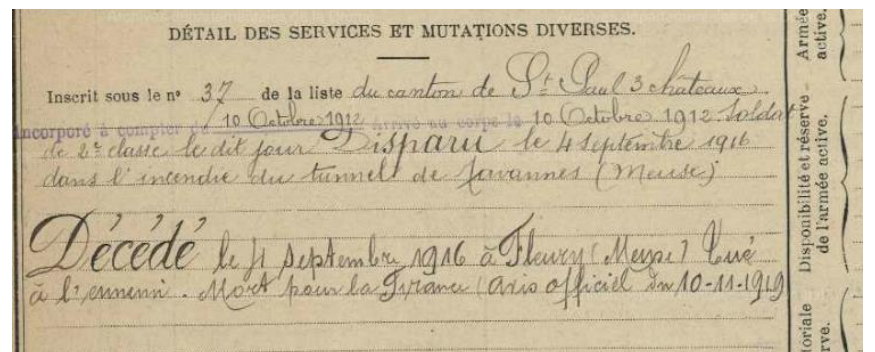 DÉTAIL DES SERVICES ET MUTATIONS DIVERSES.
Inscrit sous le nº 37 de la liste du canton de St Paul 3 châteaux.
Incorporé à compter du 10 Octobre 1912 Arrivé au corps le 10 Octobre 1912 Soldat
de 2e classe le dit jour Disparu le 4 septembre 1916
dans l'incendie du tunnel de Tavannes (Meuse)
Décédé le 4 septembre 1916 à Fleury (Meuse) Tué
à l'ennemi. Mort pour la France (avis officiel du 10-11-1919
Armée
active.
Disponibilité et réserve
de l'armée active.
toriale
rve.